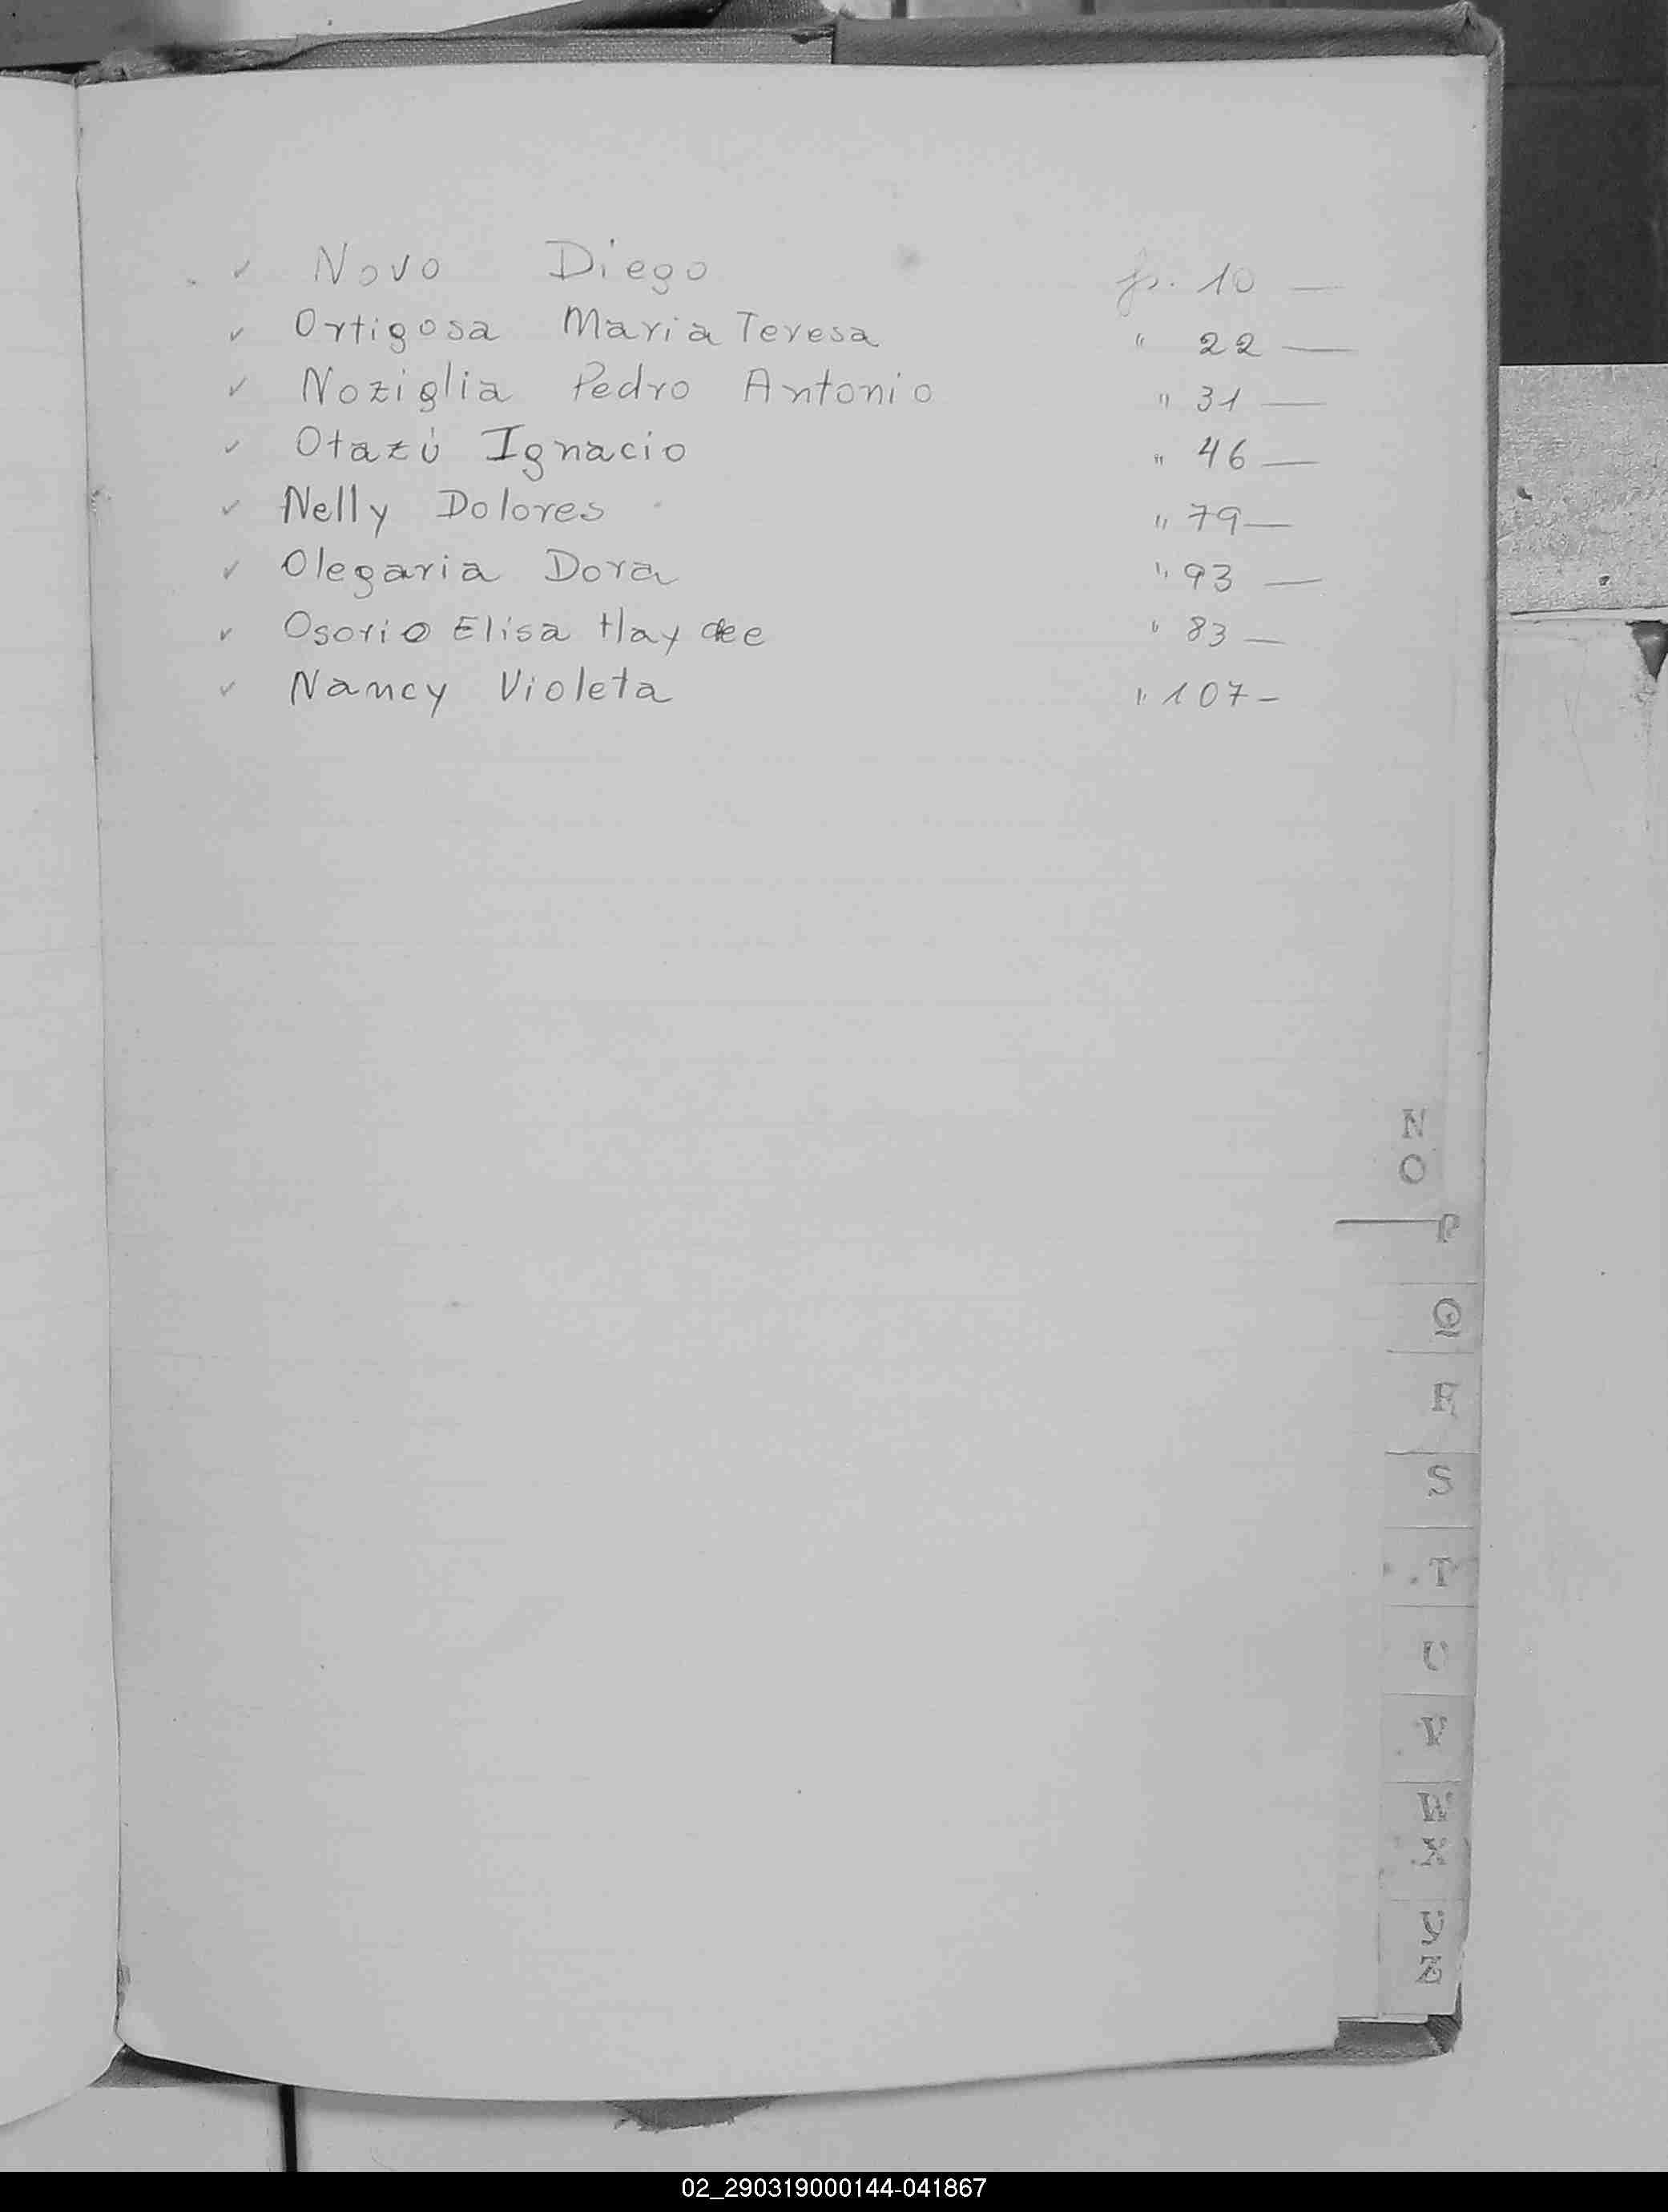 ✓ Novo Diego fs. 10 —
✓ Ortigosa Maria Teresa " 22 —
✓ Noziglia Pedro Antonio " 31 —
✓ Otazú Ignacio " 46 —
✓ Nelly Dolores " 79 —
✓ Olegaria Dora " 93 —
✓ Osorio Elisa Haydee " 83 —
✓ Nancy Violeta " 107 -
N
O
P
Q
R
S
T
U
V
W
X
Y
Z
02_290319000144-041867